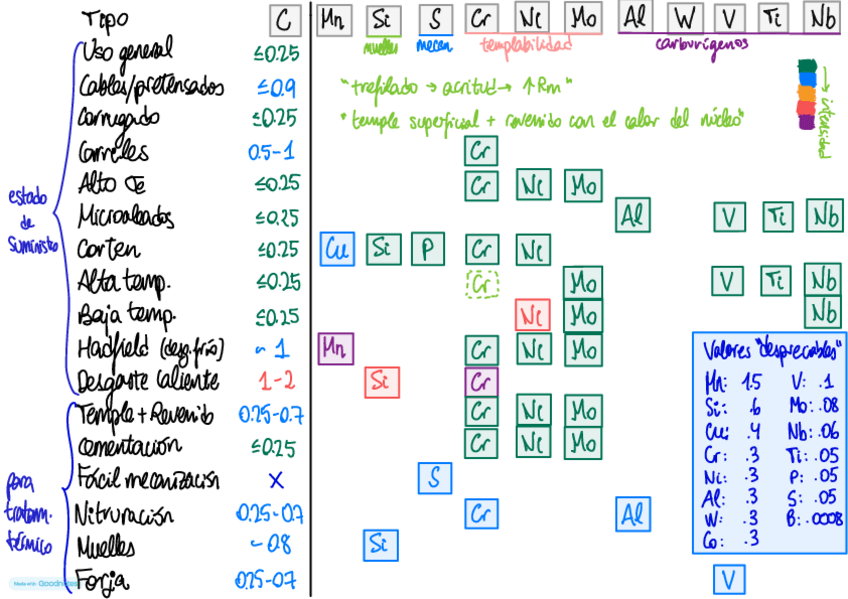 Tipo C Mn Si S Cr Ni Mo Al W V Ti Nb
muelles mecan templabilidad carburígenos
Uso general ≤0.25
Cables/pretensados ≤0.9 "trefilado → acritud → ↑Rm"
Corrugado ≤0.25 "temple superficial + revenido con el calor del núcleo"
→ intensidad
Carriles 0.5-1 Cr
Alto CE ≤0.25 Cr Ni Mo
Microaleados ≤0.25 Al V Ti Nb
estado de suministro
Corten ≤0.25 Cu Si P Cr Ni
Alta temp. ≤0.25 Cr Mo V Ti Nb
Baja temp. ≤0.25 Ni Mo Nb
Hadfield (desg. frío) ~ 1 Mn Cr Ni Mo
Desgaste caliente 1-2 Si Cr
Temple + Revenido 0.25-0.7 Cr Ni Mo
Cementación ≤0.25 Cr Ni Mo
Fácil mecanización X S
para tratam. térmico
Nitruración 0.25-0.7 Cr Al
Muelles ~0.8 Si
Forja 0.25-0.7 V
Valores "despreciables"
Mn: 1.5 V: .1
Si: .6 Mo: .08
Cu: .4 Nb: .06
Cr: .3 Ti: .05
Ni: .3 P: .05
Al: .3 S: .05
W: .3 B: .0008
Co: .3
Made with Goodnotes